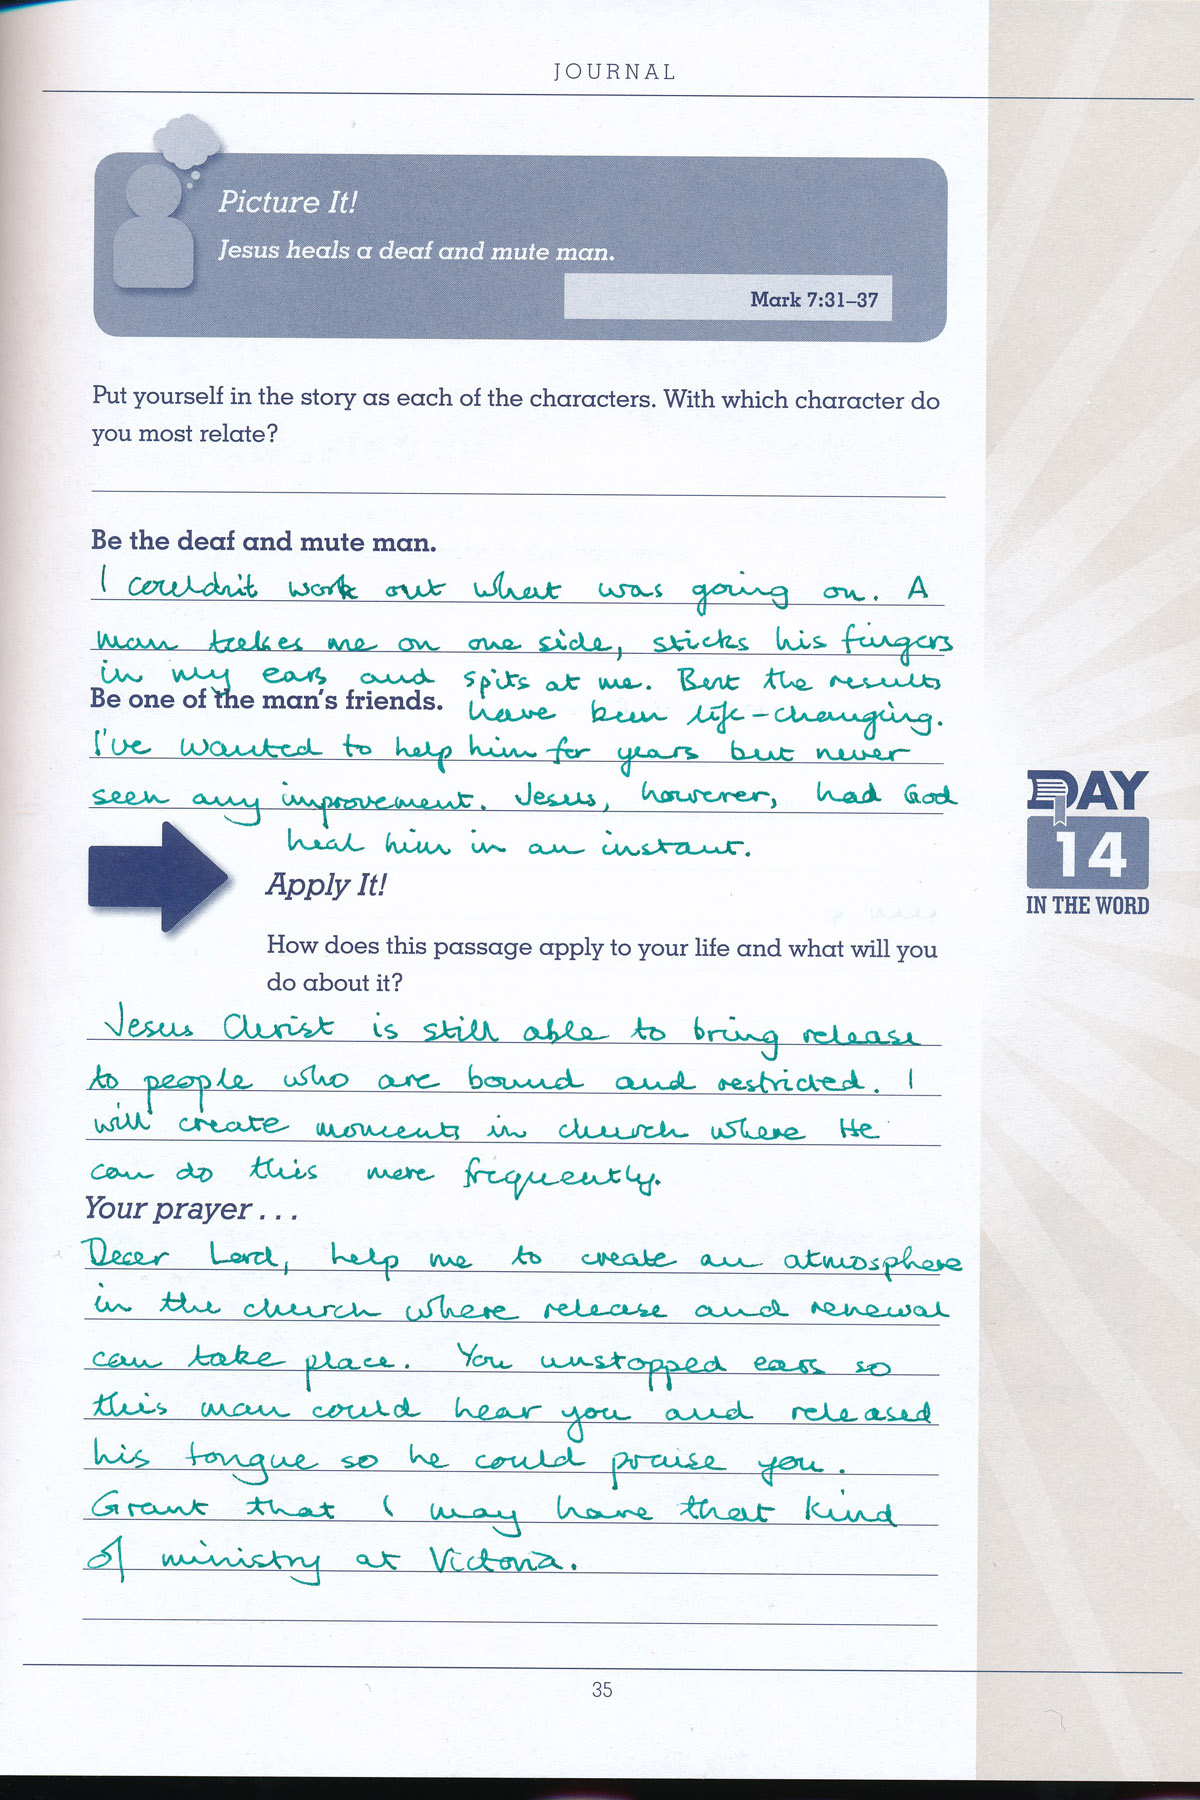 JOURNAL
Picture It!
Jesus heals a deaf and mute man.
Mark 7:31–37
Put yourself in the story as each of the characters. With which character do
you most relate?
Be the deaf and mute man.
I couldn't work out what was going on. A
man takes me on one side, sticks his fingers
in my ears and spits at me. But the results
have been life-changing.
Be one of the man's friends.
I've wanted to help him for years but never
seen any improvement. Jesus, however, had God
heal him in an instant.
Apply It!
How does this passage apply to your life and what will you
do about it?
Jesus Christ is still able to bring release
to people who are bound and restricted. I
will create moments in church where He
can do this more frequently.
Your prayer . . .
Dear Lord, help me to create an atmosphere
in the church where release and renewal
can take place. You unstopped ears so
this man could hear you and released
his tongue so he could praise you.
Grant that I may have that kind
of ministry at Victoria.
DAY
14
IN THE WORD
35